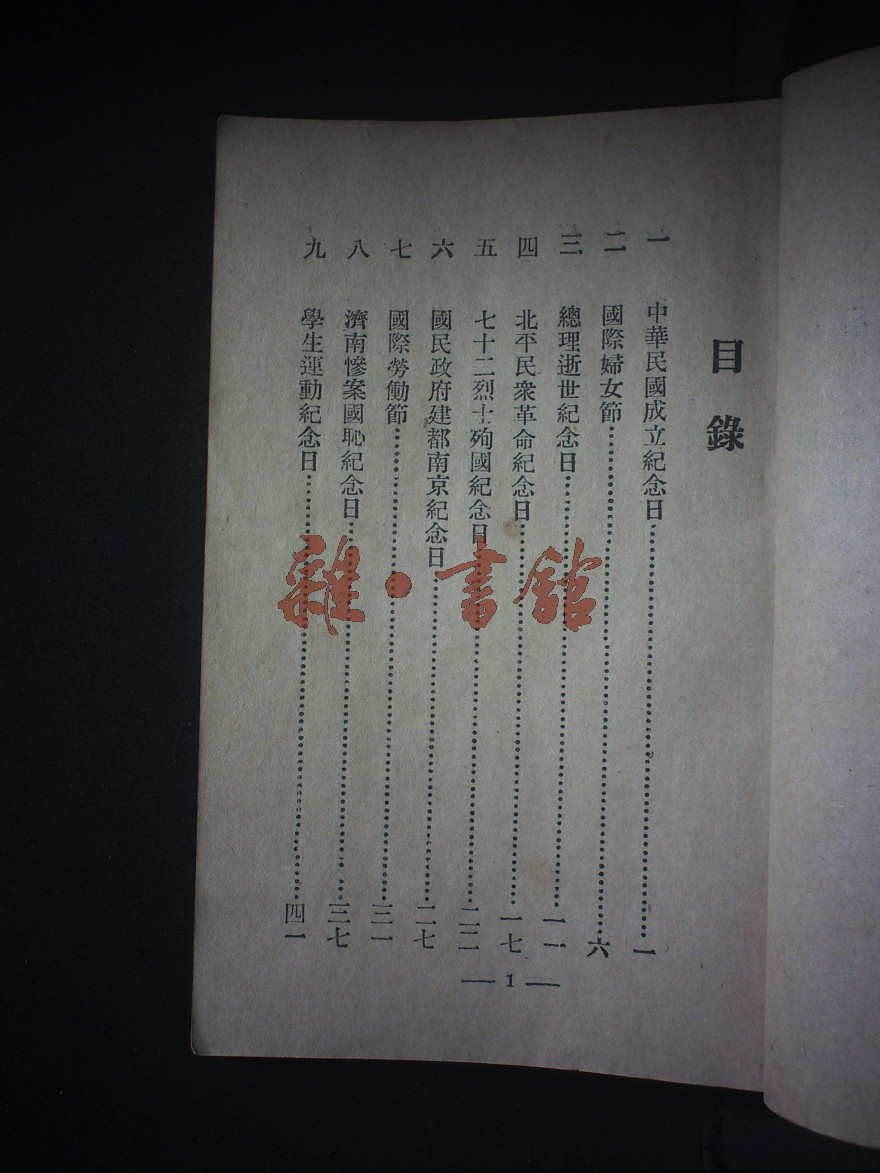 目錄
一 中華民國成立紀念日 一
二 國際婦女節 六
三 總理逝世紀念日 一一
四 北平民衆革命紀念日 一七
五 七十二烈士殉國紀念日 二二
六 國民政府建都南京紀念日 二七
七 國際勞働節 三一
八 濟南慘案國恥紀念日 三七
九 學生運動紀念日 四一
— 1 —
雜·書館